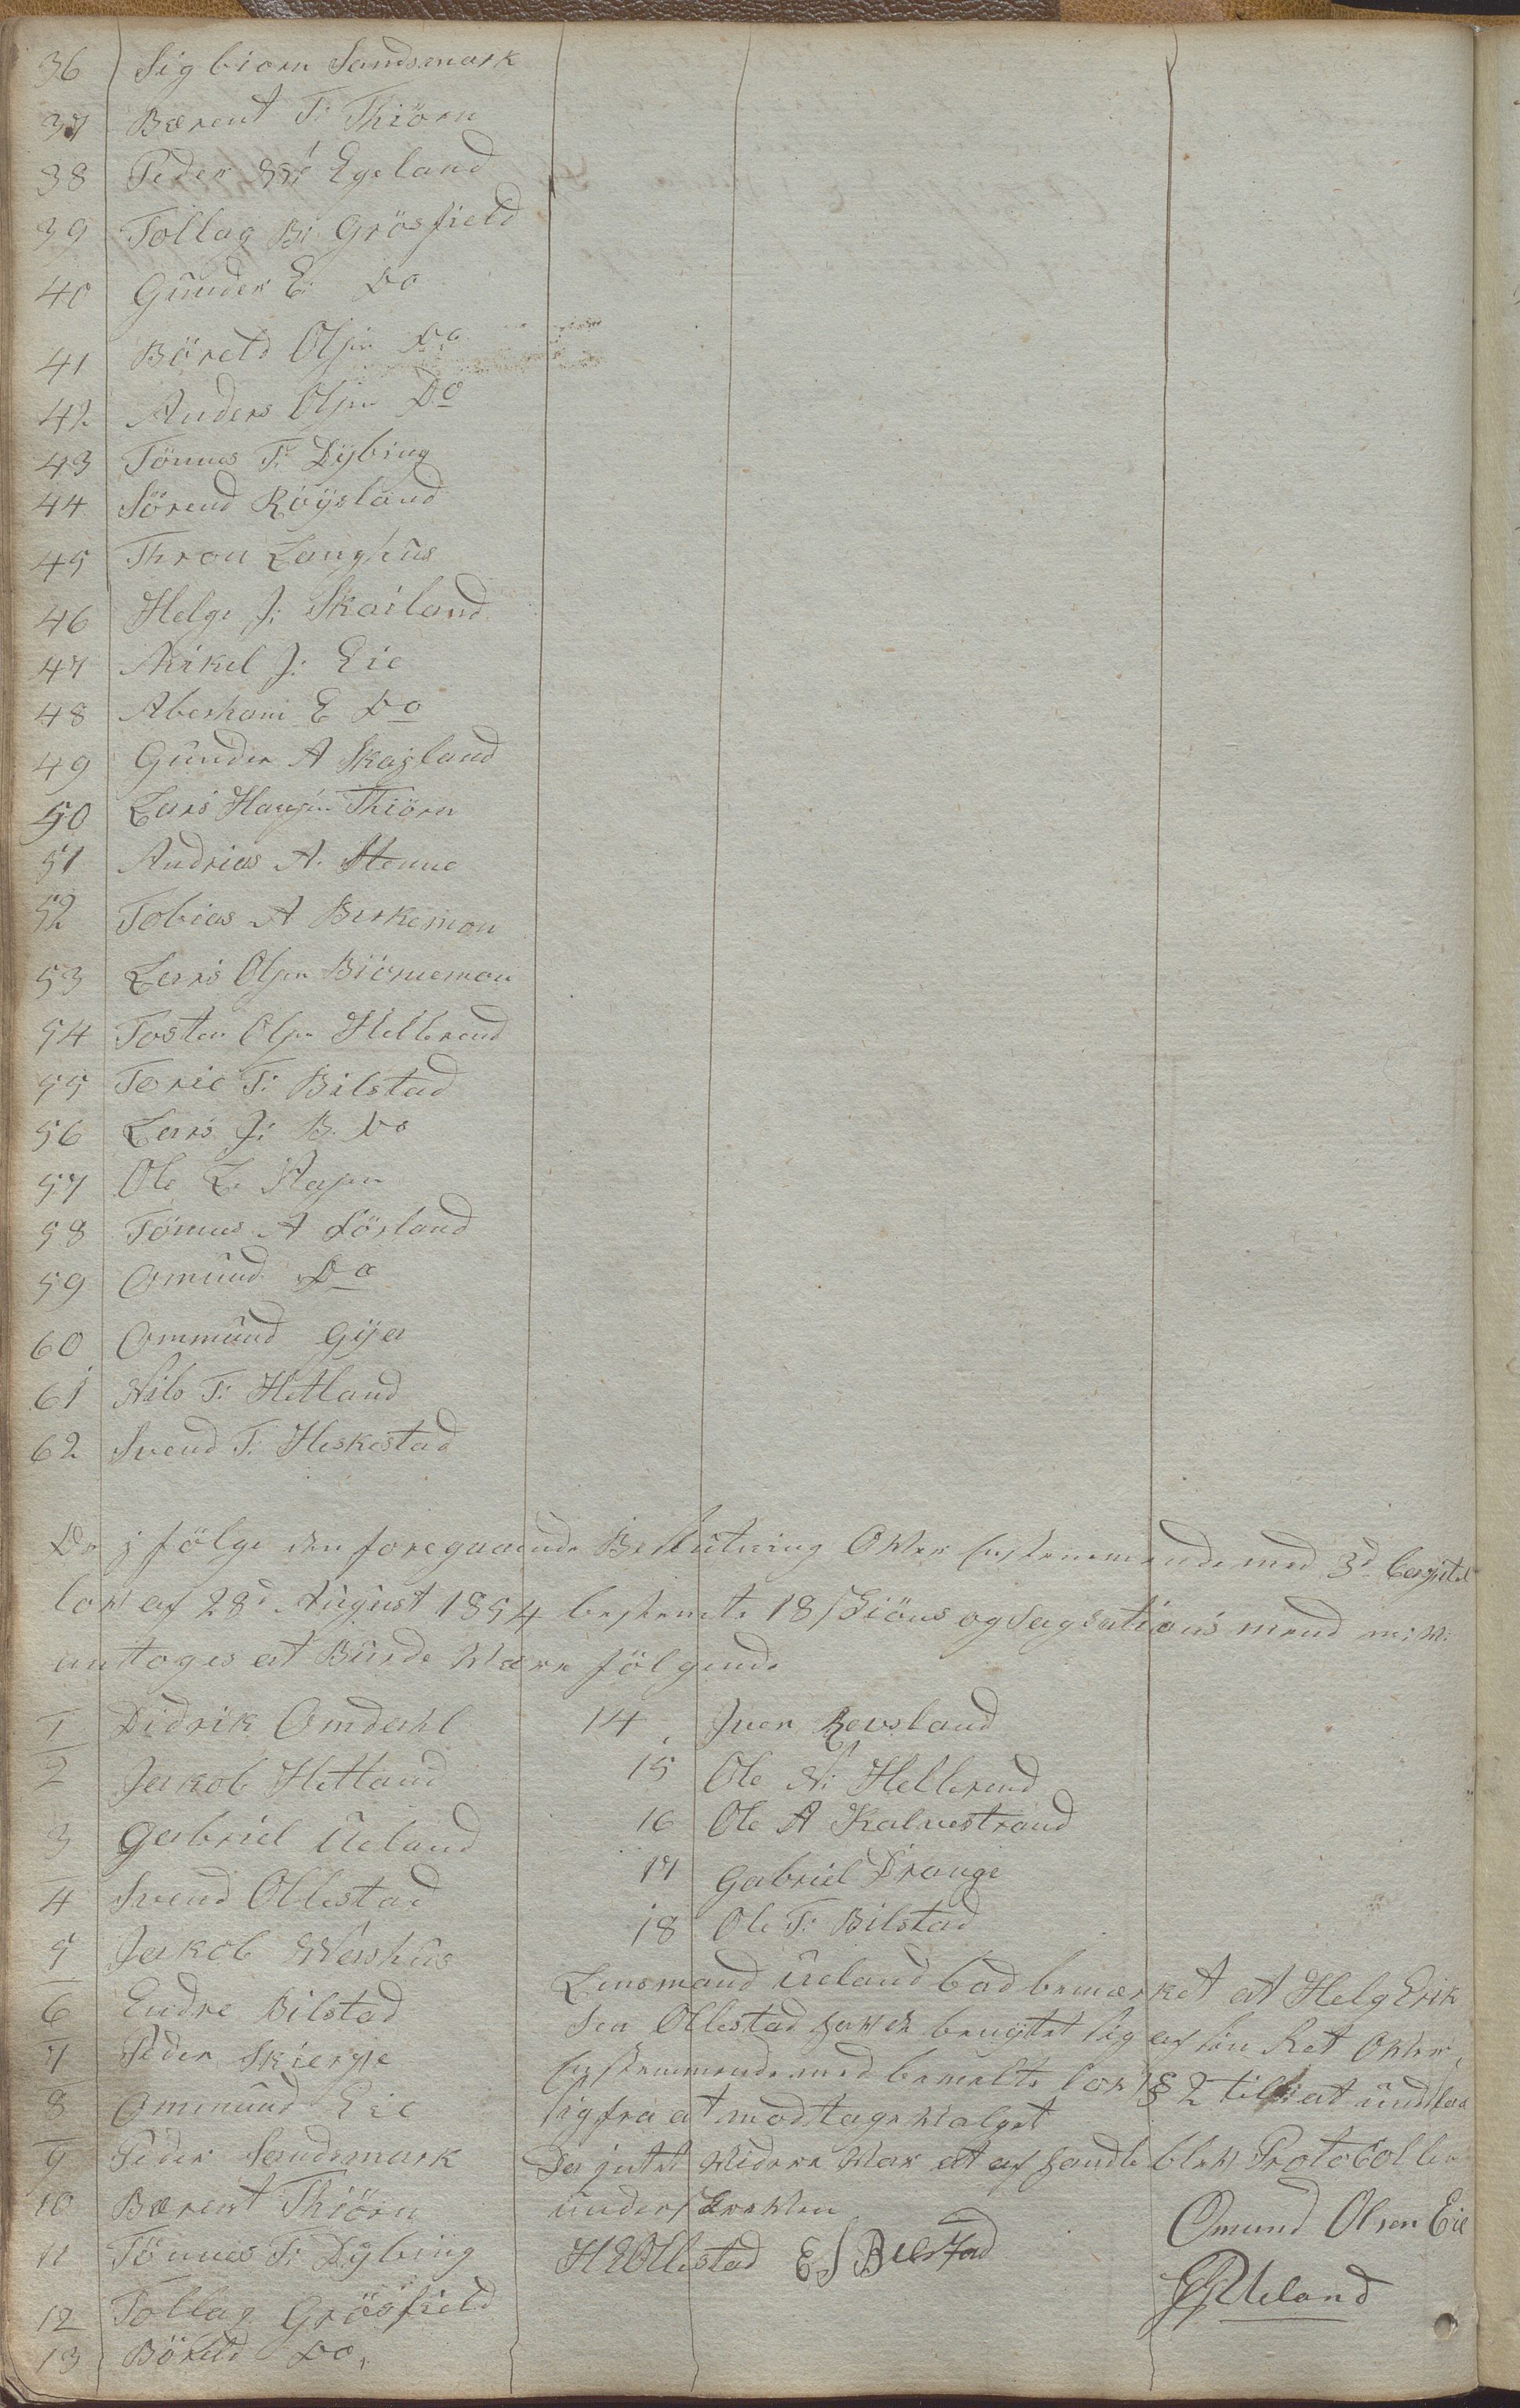 36 Sigbiorn Sandsmark
37 Bærent T: Thiörn
38 Peder  Egeland
39 Tollag B: Grösfield
40 Gunder E: Do
41 Böreld Olsen Do
42 Anders Olsen Do
43 Tönnes T: Dÿbing
44 Sörend Röÿsland
45 Thron Langhus
46 Helge J: Skailand
47 Mikel J: Eie
48 Abraham E Do
49 Gunder A Skagland
50 Lars Hansen Thiörn
51 Andrias A. Stenne
52 Tobias A Berkemon
53 Lars Olsen Biörnemon
54 Tosten Olsen Hellerend
55 Toric T: Bilstad
56 Lars J: B. Do
57 Ole L.
58 Tönnes A Lösland
59 Omund Do
60 Ommund Gÿa
61 Nils T: Hetland
62 Svend T: Heskestad
Da j fölge den foregaaende Beslutning Over enstemmende med 3d Capitel
lov af 28d August 1854 bestemte 18 Skiöns og Sagsations mend
antoges at Burde Være fölgende
1 Didrik Omdahl
2 Jakob Hetland
3 Gabriel Ueland
4 Svend Ollestad
5 Jakob Washus
6 Endre Bilstad
7 Peder Skierpe
8 Ommund Eie
9 Peder Sandsmark
10 Bærent Thiörn
11 Tönnes T: Dÿbing
12 Tollag Grösfield
13 Böreld Do.
14 Iver Revsland
15 Ole N: Hellerend
16 Ole A Kalvestrand
17 Gabriel Drange
18 Ole T: Bilstad
Lensmand Ueland bad bemærket at Helg Erik
sen Ollestad haver benÿttet sig af sin Ret Over,
ensstemmende med bemelte lov § 2 til at undslaa
sig fra at modtage Valget
Da intet Videre Var at afhandle blev Protocollen
underskreven
HEOllestad ES Bilstad
Omund Olsen Eie
Ueland